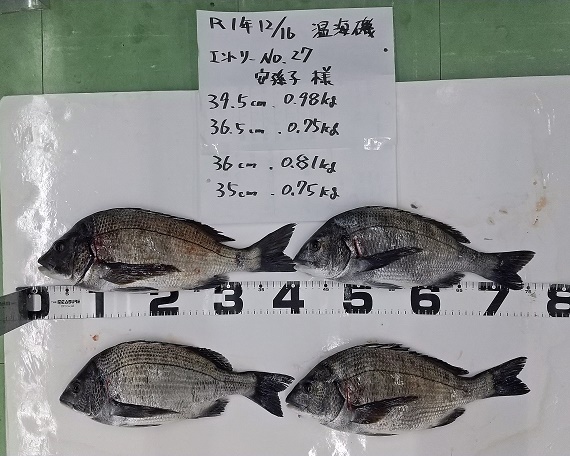 R1年12/16 温海磯
エントリーNo.27
安孫子 様
39.5cm.0.98kg
36.5cm.0.75kg
36cm.0.81kg
35cm.0.75kg
0 1 2 3 4 5 6 7 8